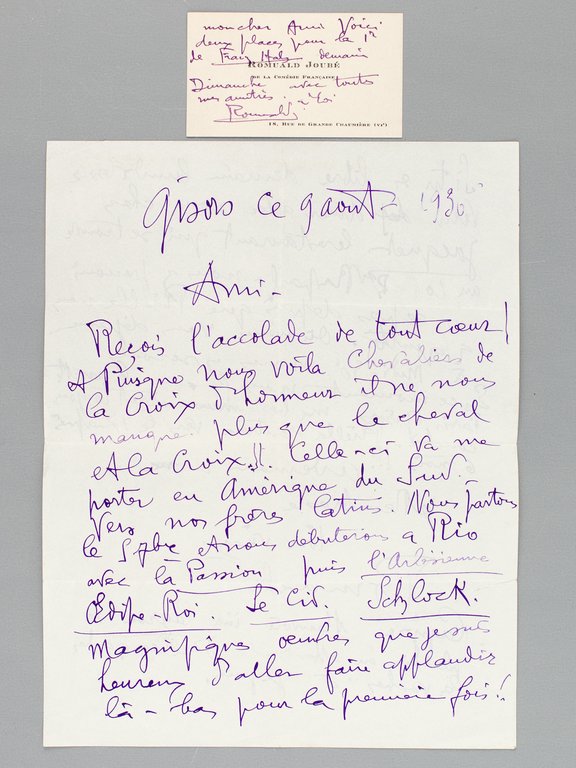 mon cher Ami Voici
deux places pour la 1re
de Franz Hals demain
ROMUALD JOUBÉ
DE LA COMÉDIE FRANÇAISE
Dimanche avec toutes
mes amitiés. à toi
Romuald
18, RUE DE GRANDE CHAUMIÈRE (VIe)
Gisors ce 9 aout - 1930
Ami -
Reçois l'accolade de tout cœur !
et Puisque nous voila Chevaliers de
la Croix d'honneur il ne nous
manque plus que le cheval
et la Croix !! Celle-ci va me
porter en Amérique du Sud -
Vers nos frères latins. Nous partons
le 5 7bre et nous débuterons a Rio
avec la Passion puis l'Arlésienne
Œdipe-Roi. Le Cid. Schylock.
Magnifiques œuvres que je suis
heureux d'aller faire applaudir
là-bas pour la première fois !!